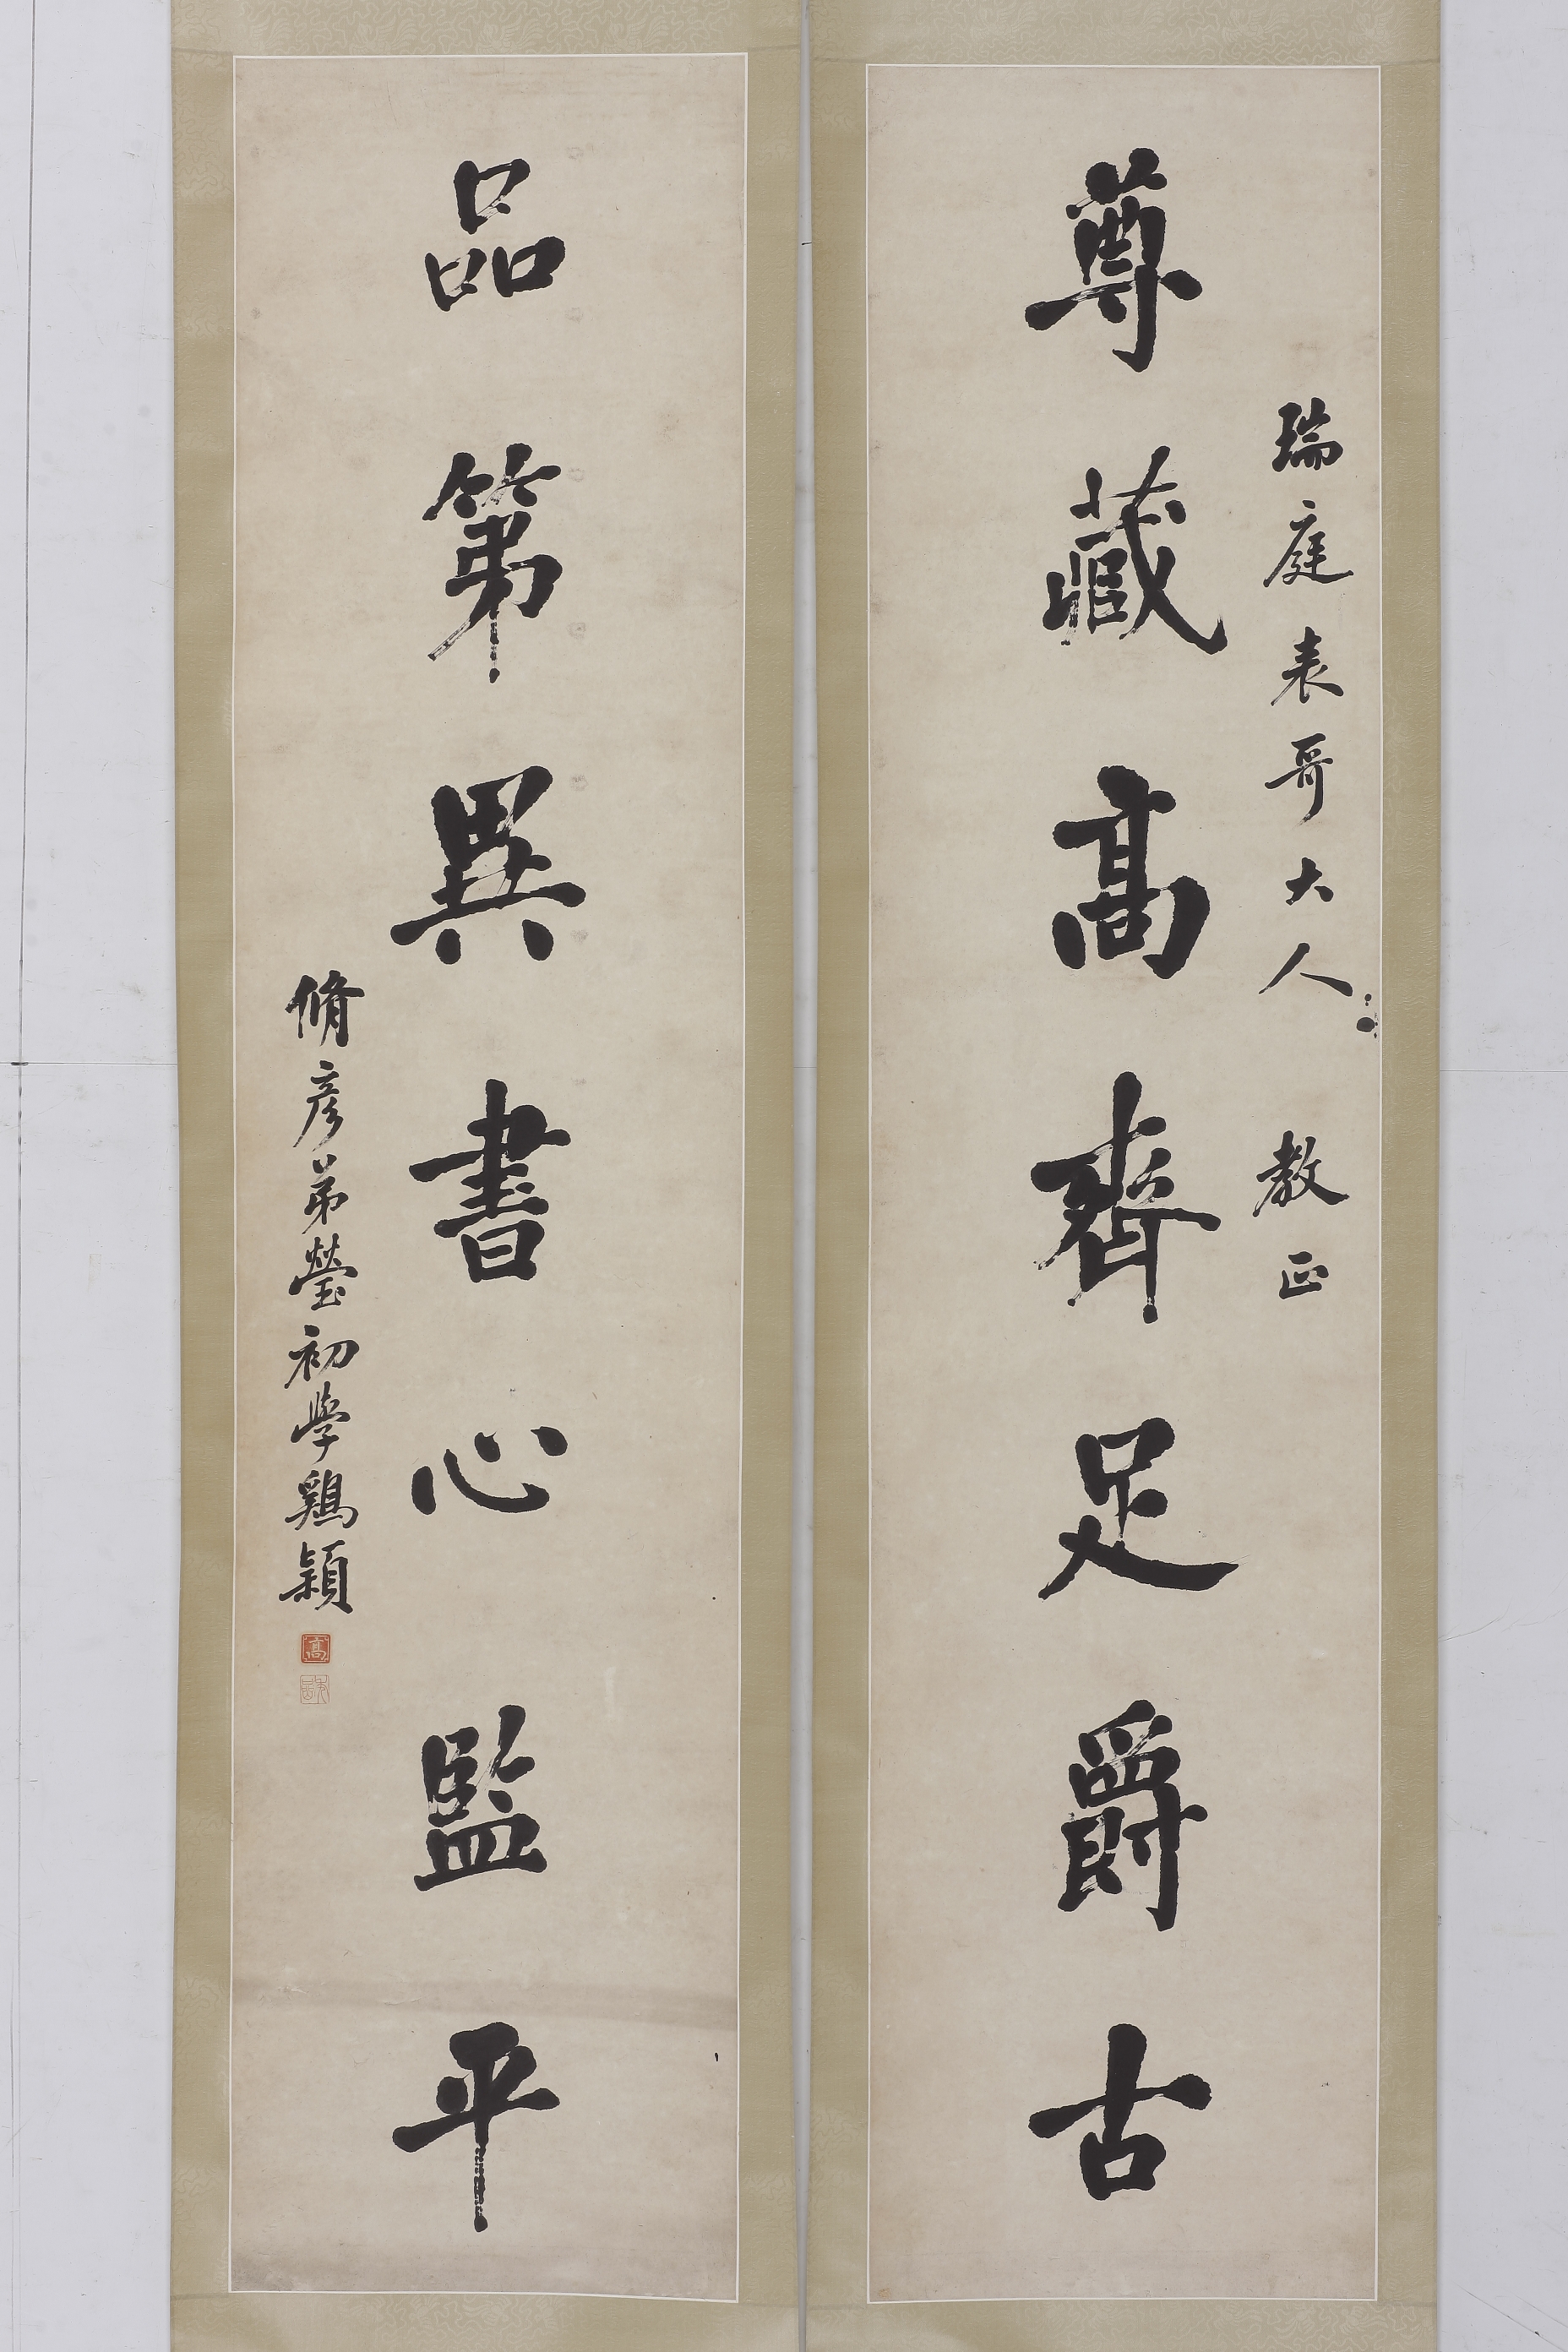 瑞庭表哥大人 教正
尊藏高齊足爵古
品第異書心監平
脩彥弟瑩初學鷄穎
高